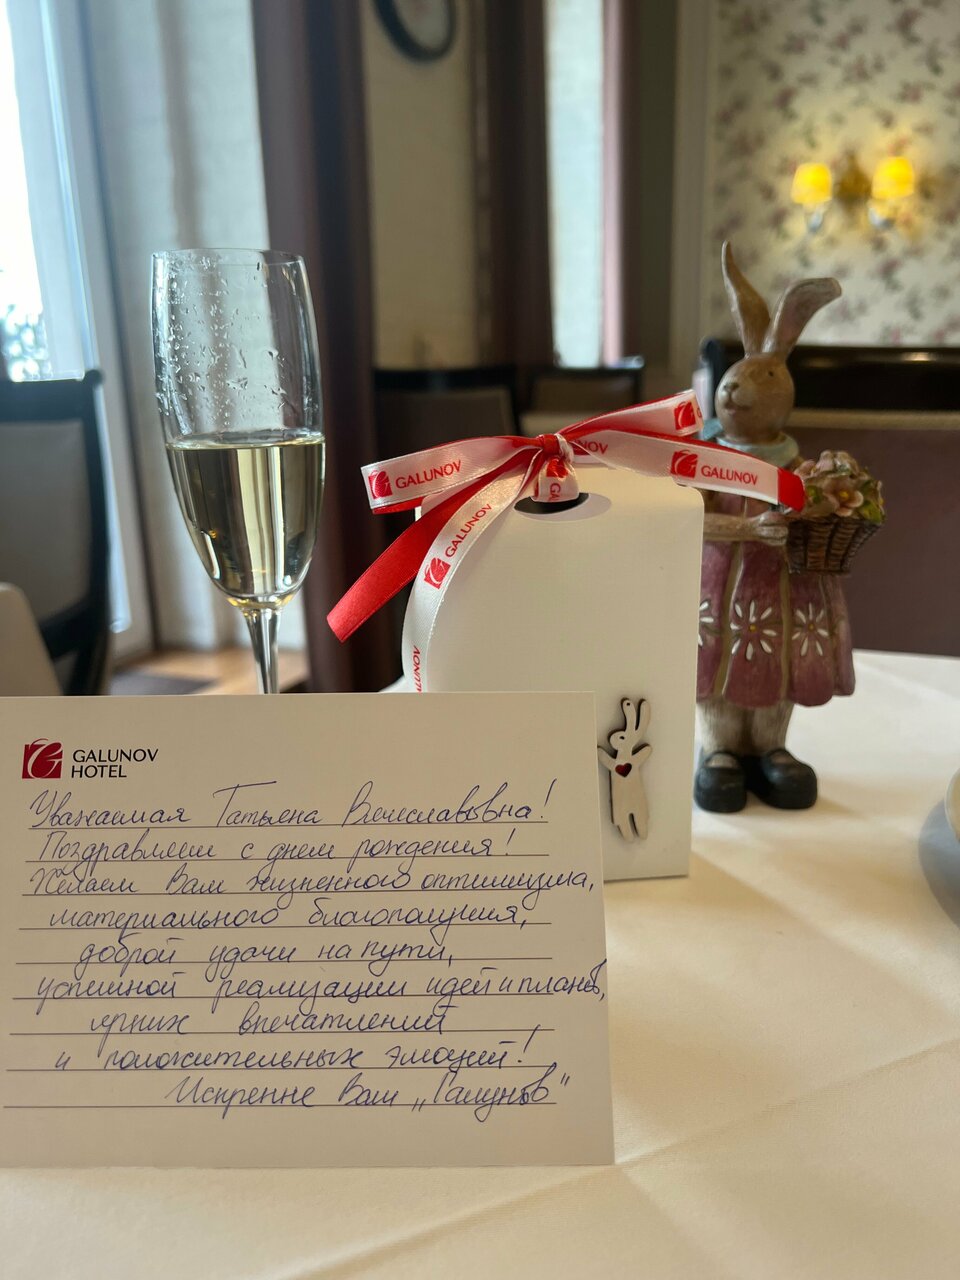 GALUNOV
GALUNOV
GALUNOV
GALUNOV
GALUNOV
GALUNOV
HOTEL
Уважаемая Татьяна Вячеславовна!
Поздравляем с днем рождения!
Желаем Вам жизненного оптимизма,
материального благополучия,
доброй удачи на пути,
успешной реализации идей и планов,
ярких впечатлений
и положительных эмоций!
Искренне Ваш „Галунов"